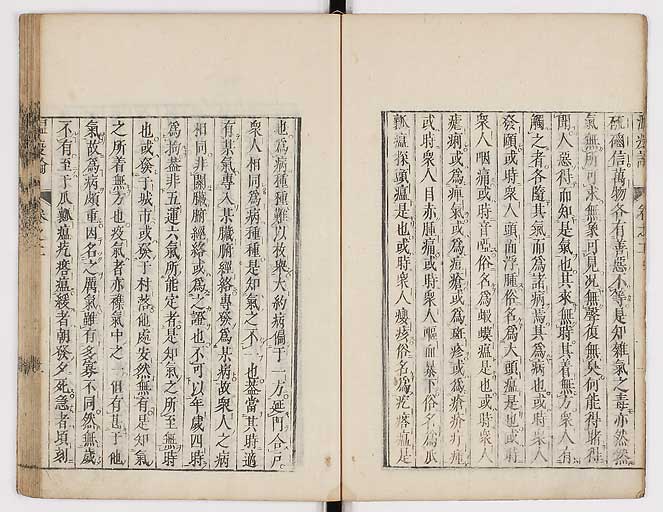 硇信萬物各有善惡不等是知雜氣之毒亦然然
氣無所可求無象可見况無聲復無臭何能得睹得
聞人惡得而知是氣也其來無時其着無方衆人有
觸之者各隨其氣而為諸病焉其為病也或時衆人
發頤或時衆人頭面浮腫俗名為大頭瘟是也或時
衆人咽痛或時音啞俗名為蝦蟆瘟是也或時衆人
瘧痢或為痺氣或為痘瘡或為斑疹或為瘡疥疔瘇
或時衆人目赤腫痛或時衆人嘔血暴下俗名為瓜
瓤瘟探頭瘟是也或時衆人癭痎俗名為疙瘩瘟是
也為病種種難以枚舉大約病偏于一方延門合戶
衆人相同為病種種是知氣之不一也盖當其時適
有某氣專入某臟腑經絡專發為某病故衆人之病
相同非關臟腑經絡或為之證也不可以年歲四時
為拘盖非五運六氣所能定者是知氣之所至無時
也或發于城市或發于村落他處安然無有是知氣
之所着無方也疫氣者亦雜氣中之一但有甚于他
氣故為病頗重因名之厲氣雖有多寡不同然無歲
不有至于瓜瓤瘟疙瘩瘟緩者朝發夕死急者頃刻